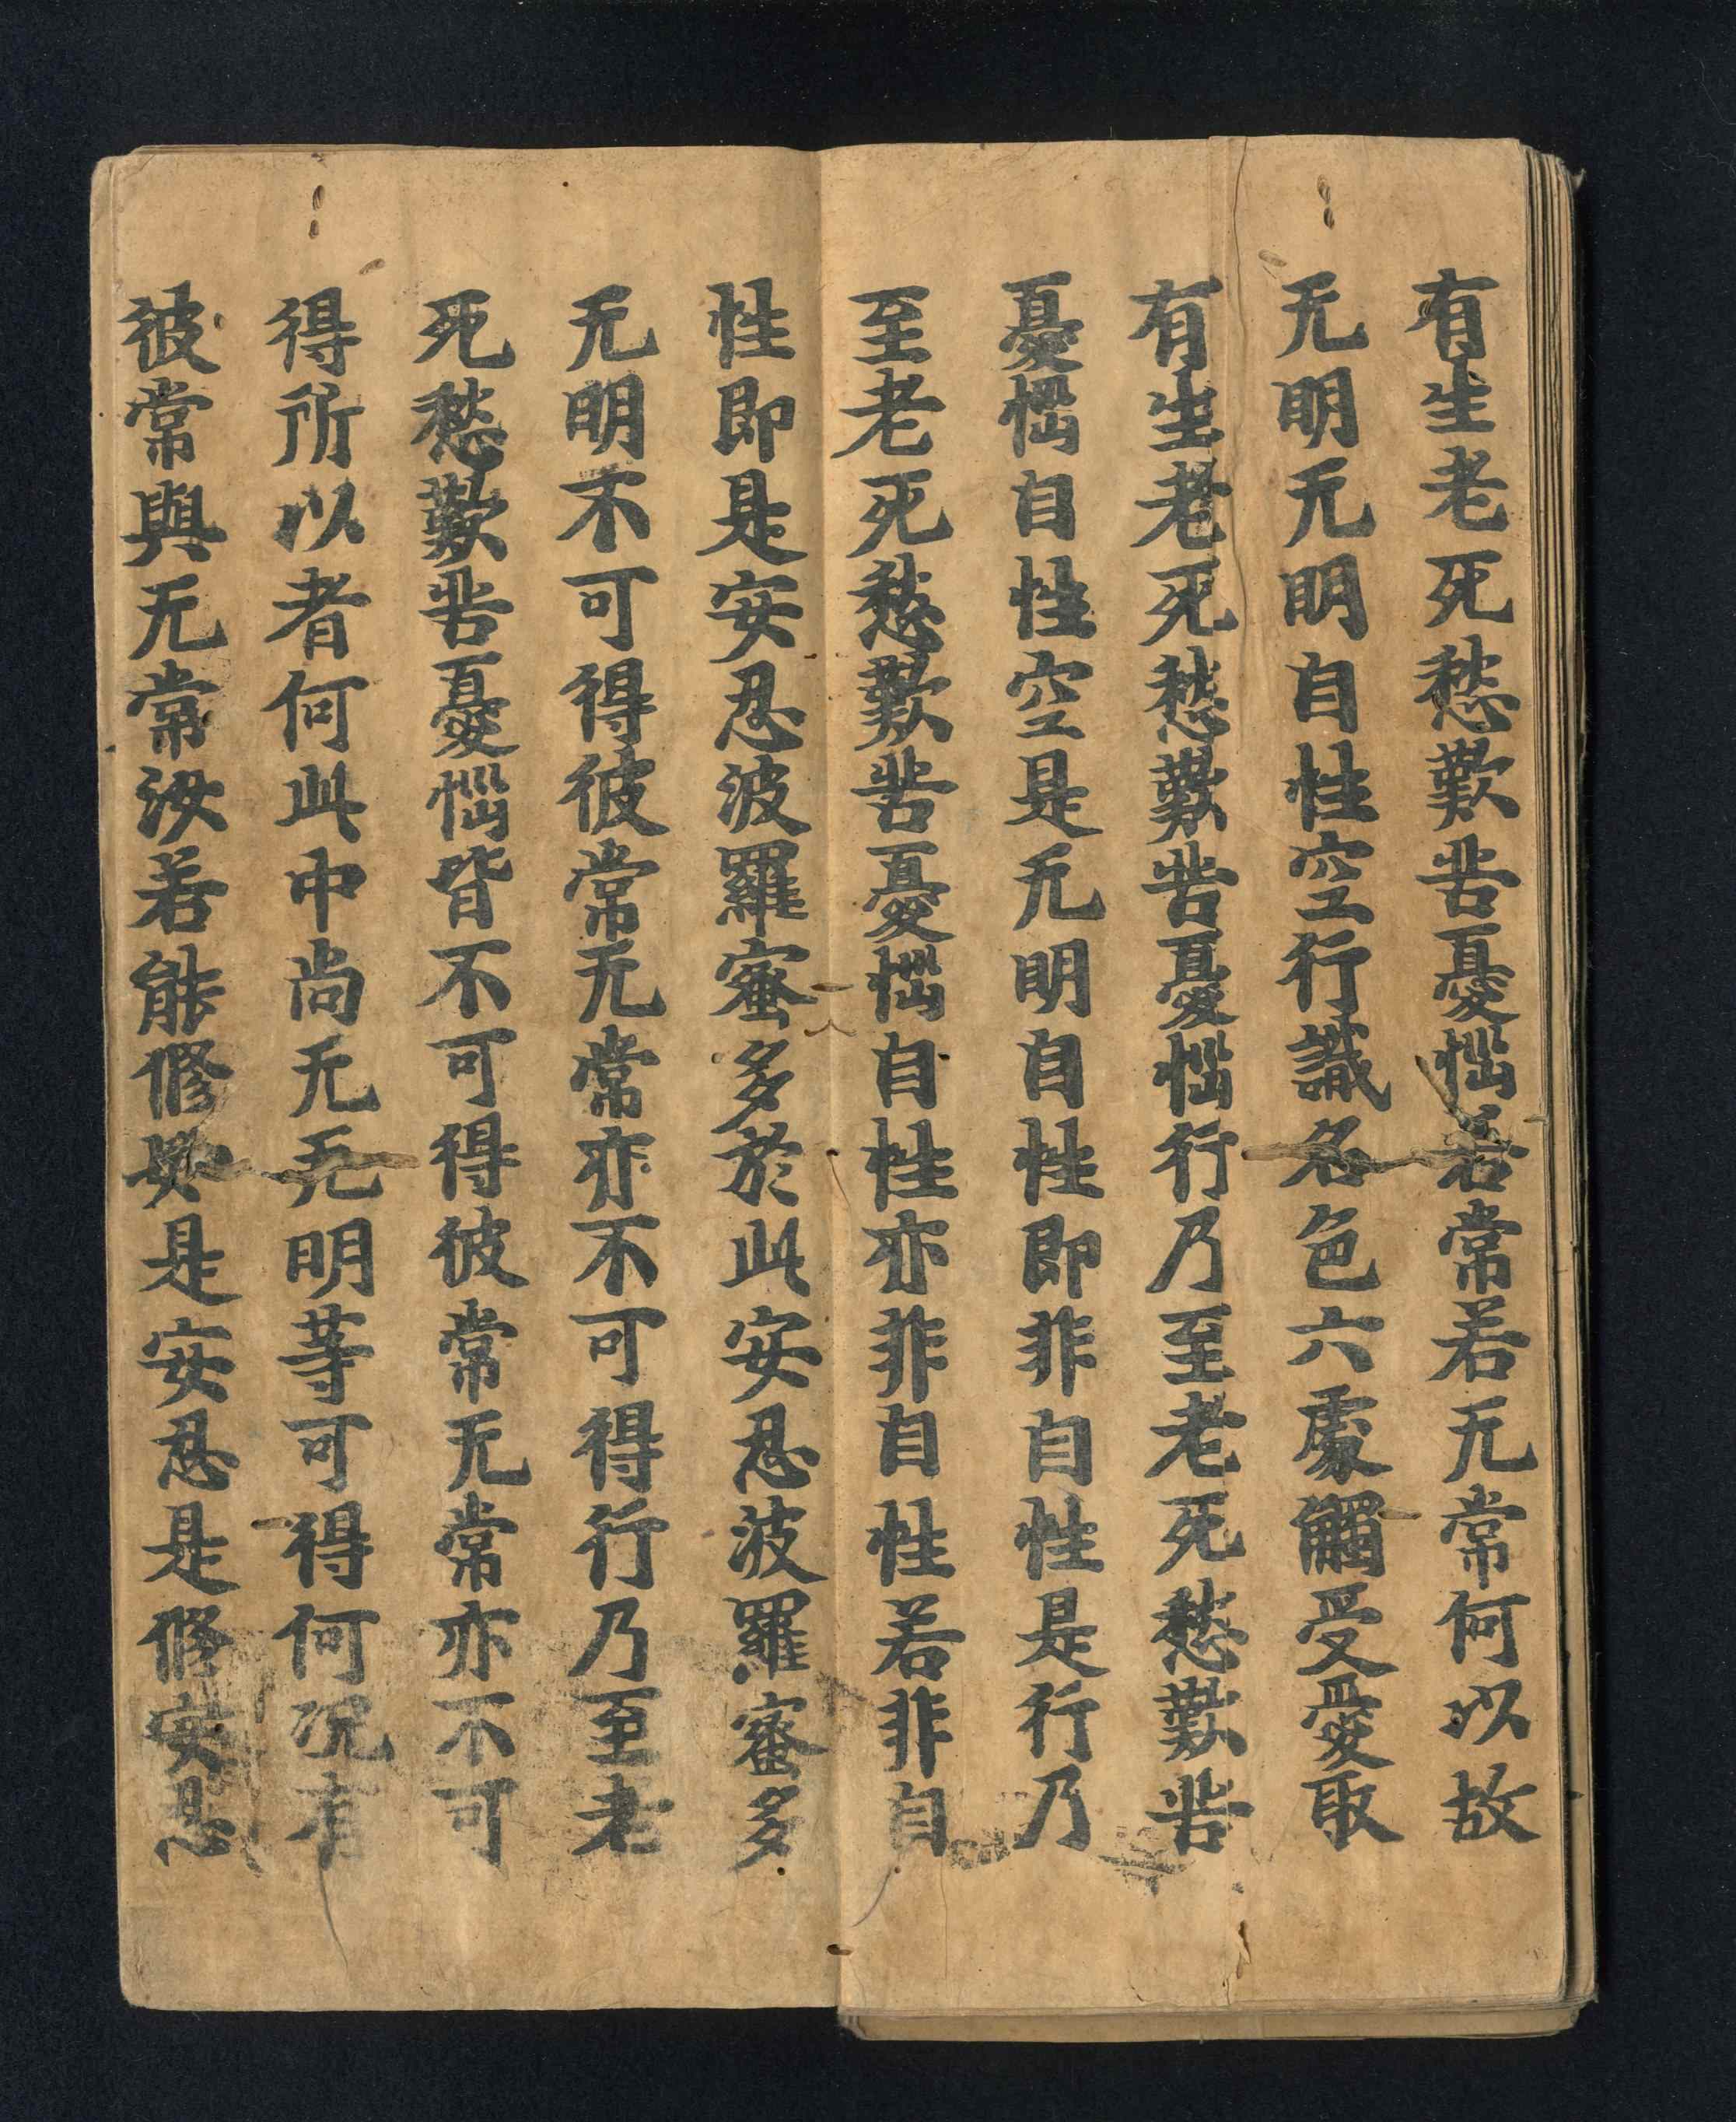 有生老死愁歎苦憂惱若常若无常何以故
无明无明自性空行識名色六處觸受愛取
有生老死愁歎苦憂惱行乃至老死愁歎苦
憂惱自性空是无明自性即非自性是行乃
至老死愁歎苦憂惱自性亦非自性若非自
性即是安忍波羅蜜多於此安忍波羅蜜多
无明不可得彼常无常亦不可得行乃至老
死愁歎苦憂惱皆不可得彼常无常亦不可
得所以者何此中尚无无明等可得何況有
彼常與无常汝若能修如是安忍是修安忍